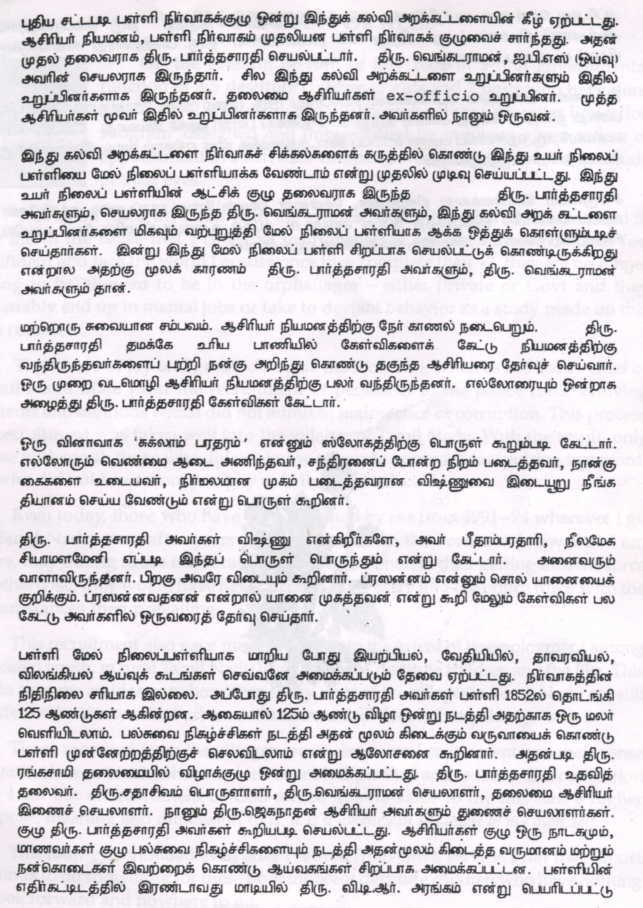 புதிய சட்டபடி பள்ளி நிர்வாகக்குழு ஒன்று இந்துக் கல்வி அறக்கட்டளையின் கீழ் ஏற்பட்டது.
ஆசிரியர் நியமனம், பள்ளி நிர்வாகம் முதலியன பள்ளி நிர்வாகக் குழுவைச் சார்ந்தது. அதன்
முதல் தலைவராக திரு. பார்த்தசாரதி செயல்பட்டார். திரு. வெங்கடராமன், ஐ.பி.எஸ் (ஓய்வு)
அவரின் செயலராக இருந்தார். சில இந்து கல்வி அறக்கட்டளை உறுப்பினர்களும் இதில்
உறுப்பினர்களாக இருந்தனர். தலைமை ஆசிரியர்கள் ex-officio உறுப்பினர். மூத்த
ஆசிரியர்கள் மூவர் இதில் உறுப்பினர்களாக இருந்தனர். அவர்களில் நானும் ஒருவன்.
இந்து கல்வி அறக்கட்டளை நிர்வாகச் சிக்கல்களைக் கருத்தில் கொண்டு இந்து உயர் நிலைப்
பள்ளியை மேல் நிலைப் பள்ளியாக்க வேண்டாம் என்று முதலில் முடிவு செய்யப்பட்டது. இந்து
உயர் நிலைப் பள்ளியின் ஆட்சிக் குழு தலைவராக இருந்த திரு. பார்த்தசாரதி
அவர்களும், செயலராக இருந்த திரு. வெங்கடராமன் அவர்களும், இந்து கல்வி அறக் கட்டளை
உறுப்பினர்களை மிகவும் வற்புறுத்தி மேல் நிலைப் பள்ளியாக ஆக்க ஒத்துக் கொள்ளும்படிச்
செய்தார்கள். இன்று இந்து மேல் நிலைப் பள்ளி சிறப்பாக செயல்பட்டுக் கொண்டிருக்கிறது
என்றால அதற்கு மூலக் காரணம் திரு. பார்த்தசாரதி அவர்களும், திரு. வெங்கடராமன்
அவர்களும் தான்.
மற்றொரு சுவையான சம்பவம். ஆசிரியர் நியமனத்திற்கு நேர் காணல் நடைபெறும். திரு.
பார்த்தசாரதி தமக்கே உரிய பாணியில் கேள்விகளைக் கேட்டு நியமனத்திற்கு
வந்திருந்தவர்களைப் பற்றி நன்கு அறிந்து கொண்டு தகுந்த ஆசிரியரை தேர்வுச் செய்வார்.
ஒரு முறை வடமொழி ஆசிரியர் நியமனத்திற்கு பலர் வந்திருந்தனர். எல்லோரையும் ஒன்றாக
அழைத்து திரு. பார்த்தசாரதி கேள்விகள் கேட்டார்.
ஒரு வினாவாக 'சுக்லாம் பரதரம்' என்னும் ஸ்லோகத்திற்கு பொருள் கூறும்படி கேட்டார்.
எல்லோரும் வெண்மை ஆடை அணிந்தவர், சந்திரனைப் போன்ற நிறம் படைத்தவர், நான்கு
கைகளை உடையவர், நிர்மலமான முகம் படைத்தவரான விஷ்ணுவை இடையூறு நீங்க
தியானம் செய்ய வேண்டும் என்று பொருள் கூறினர்.
திரு. பார்த்தசாரதி அவர்கள் விஷ்ணு என்கிறீர்களே, அவர் பீதாம்பரதாரி, நீலமேக
சியாமளமேனி எப்படி இந்தப் பொருள் பொருந்தும் என்று கேட்டார். அனைவரும்
வாளாவிருந்தனர். பிறகு அவரே விடையும் கூறினார். ப்ரஸன்னம் என்னும் சொல் யானையைக்
குறிக்கும். ப்ரஸன்னவதனன் என்றால் யானை முகத்தவன் என்று கூறி மேலும் கேள்விகள் பல
கேட்டு அவர்களில் ஒருவரைத் தேர்வு செய்தார்.
பள்ளி மேல் நிலைப்பள்ளியாக மாறிய போது இயற்பியல், வேதியியில், தாவரவியல்,
விலங்கியல் ஆய்வுக் கூடங்கள் செவ்வனே அமைக்கப்படும் தேவை ஏற்பட்டது. நிர்வாகத்தின்
நிதிநிலை சரியாக இல்லை. அப்போது திரு. பார்த்தசாரதி அவர்கள் பள்ளி 1852ல் தொட்ங்கி
125 ஆண்டுகள் ஆகின்றன. ஆகையால் 125ம் ஆண்டு விழா ஒன்று நடத்தி அதற்காக ஒரு மலர்
வெளியிடலாம். பல்சுவை நிகழ்ச்சிகள் நடத்தி அதன் மூலம் கிடைக்கும் வருவாயைக் கொண்டு
பள்ளி முன்னேற்றத்திற்குச் செலவிடலாம் என்று ஆலோசனை கூறினார். அதன்படி திரு.
ரங்கசாமி தலைமையில் விழாக்குழு ஒன்று அமைக்கப்பட்டது. திரு. பார்த்தசாரதி உதவித்
தலைவர். திரு.சதாசிவம் பொருளாளர், திரு.வெங்கடராமன் செயலாளர், தலைமை ஆசிரியர்
இணைச் செயலாளர். நானும் திரு.ஜெகநாதன் ஆசிரியர் அவர்களும் துணைச் செயலாளர்கள்.
குழு திரு. பார்த்தசாரதி அவர்கள் கூறியபடி செயல்பட்டது. ஆசிரியர்கள் குழு ஒரு நாடகமும்,
மாணவர்கள் குழு பல்சுவை நிகழ்ச்சிகளையும் நடத்தி அதன்மூலம் கிடைத்த வருமானம் மற்றும்
நன்கொடைகள் இவற்றைக் கொண்டு ஆய்வகங்கள் சிறப்பாக அமைக்கப்பட்டன. பள்ளியின்
எதிர்கட்டிடத்தில் இரண்டாவது மாடியில் திரு. வி.டி.ஆர். அரங்கம் என்று பெயரிடப்பட்டு